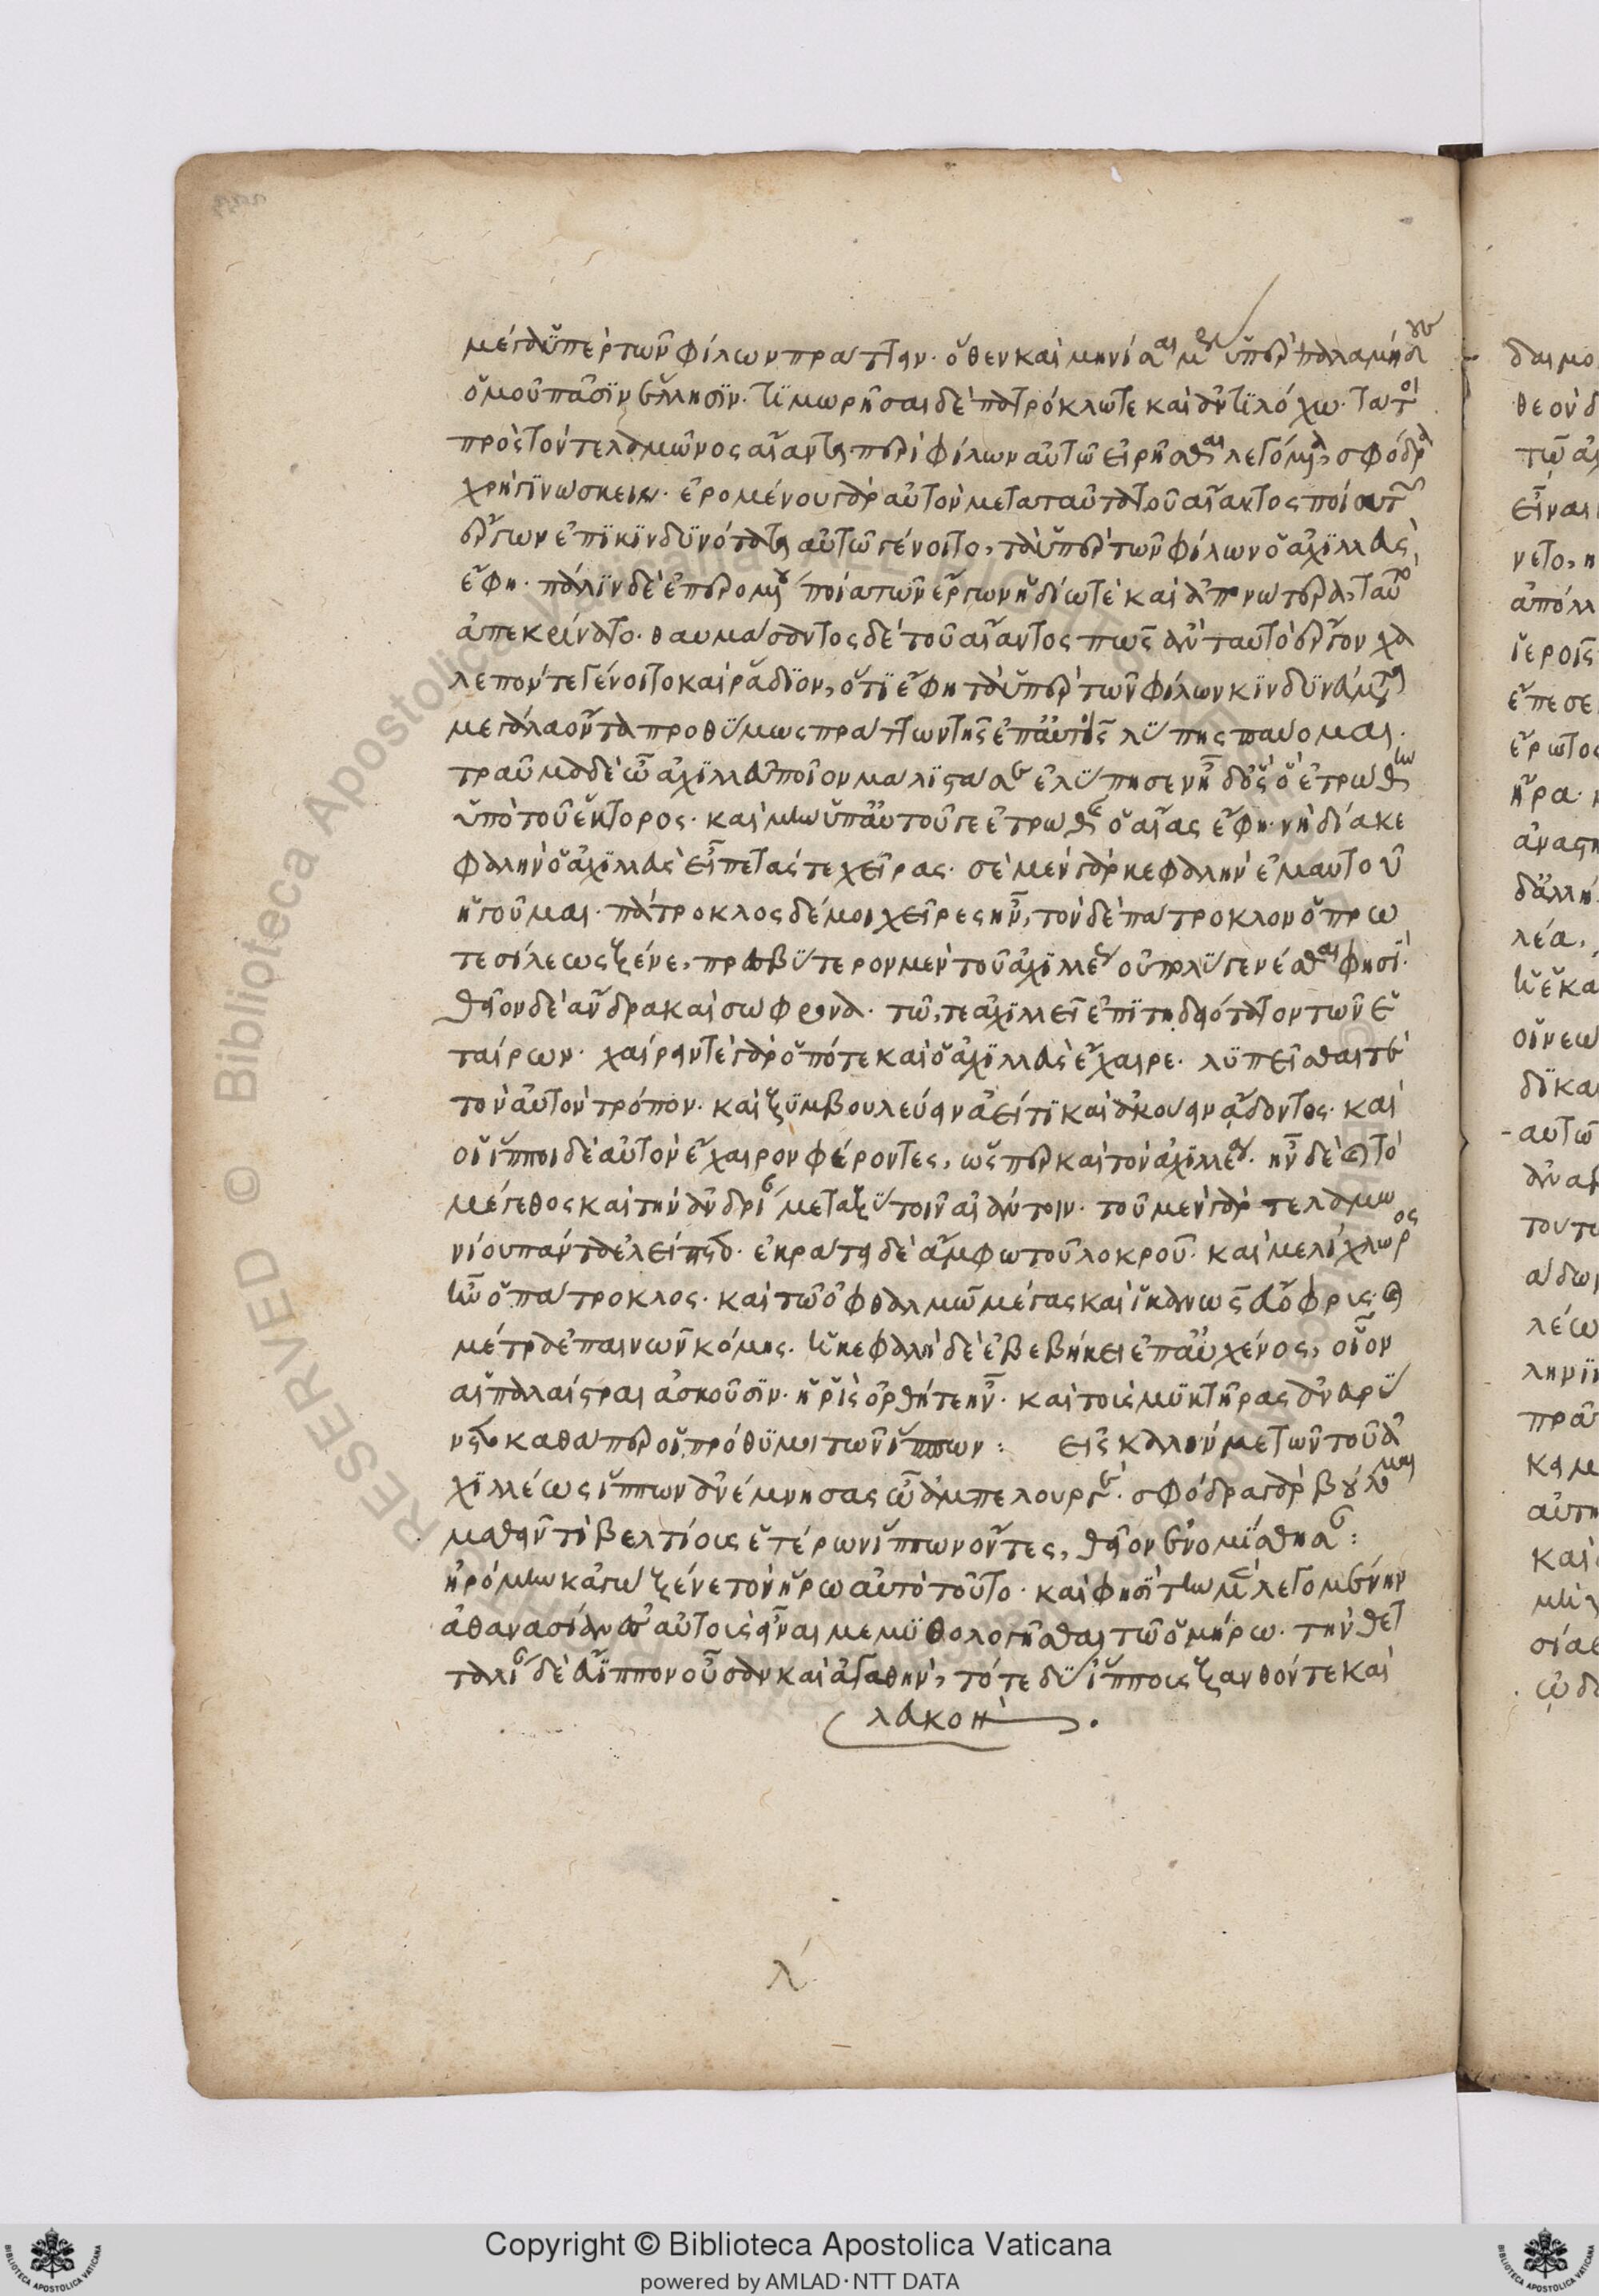 μέγα ὑπὲρ τῶν φίλων πράττειν. ὅθεν καὶ μηνίσαι μὲν ὑπὲρ παλαμήδους
ὁμοῦ πᾶσιν ἕλλησιν. τιμωρῆσαι δὲ πατρόκλω τε καὶ ἀντιλόχω. τὰ τοι
πρὸς τὸν τελαμῶνος αἴαντα περὶ φίλων αὐτῶ εἰρῆσθαι λεγόμενα, σφόδρα
χρὴ γινώσκειν. ἐρομένου γὰρ αὐτὸν μετὰ ταῦτα τοῦ αἴαντος ποῖα τῶν
ἔργων ἐπικινδυνότατα αὐτῶ γένοιτο, τὰ ὑπὲρ τῶν φίλων ὁ ἀχιλλεὺς
ἔφη. πάλιν δὲ ἐπερομένου ποῖα τῶν ἔργων ἡδίω τὲ καὶ ἀπονώτερα, ταὐτὸ
ἀπεκρίνατο. θαυμάσαντος δὲ τοῦ αἴαντος πῶς ἂν ταὐτὸ ἔργον χα
λεπόν τε γένοιτο καὶ ῥάδιον, ὅτι ἔφη τὰ ὑπὲρ τῶν φίλων κινδυνεύματα
μεγάλα ὄντα προθύμως πράττων τῆς ἐπ' αὐτοῖς λύπης παύομαι.
τραῦμα δὲ ὦ ἀχιλλεῦ ποῖον μάλιστά σε ἐλύπησεν ἤδη; ὃ ἐτρώθην
ὑπὸ τοῦ ἕκτορος. καὶ μὴν ὑπ' αὐτοῦ γε ἐτρώθης ὁ αἴας ἔφη. νὴ δία κε
φαλήν ὁ ἀχιλλεὺς εἶπε τάς τε χεῖρας. σὲ μὲν γὰρ κεφαλὴν ἐμαυτοῦ
ἡγοῦμαι. πάτροκλος δέ μοι χεῖρες ἦν, τὸν δὲ πάτροκλον ὁ πρω
τεσίλεως ξένε, πρεσβύτερον μὲν τοῦ ἀχιλλέως οὐ πολὺ γενέσθαι φησί.
θεῖον δὲ ἄνδρα καὶ σώφρονα. τῶ, τε ἀχιλλεῖ ἐπιτηδειότατον τῶν ἑ
ταίρων. χαίρειν τὲ γὰρ ὁπότε καὶ ὁ ἀχιλλεὺς ἔχαιρε. λυπεῖσθαί τε
τὸν αὐτὸν τρόπον. καὶ ξυμβουλεύειν ἀεί τι καὶ ἀκούειν ᾄδοντος. καὶ
οἱ ἵπποι δὲ αὐτὸν ἔχαιρον φέροντες, ὥσπερ καὶ τὸν ἀχιλλέα. ἦν δὲ καὶ τὸ
μέγεθος καὶ τὴν ἀνδρίαν μεταξὺ τοῖν αἰάντοιν. τοῦ μὲν γὰρ τελαμω
νίου πάντα ἐλείπετο. ἐκράτει δὲ ἄμφω τοῦ λοκροῦ. καὶ μελίχλωρος
ἦν ὁ πάτροκλος. καὶ τὼ ὀφθαλμὼ μέγας καὶ ἱκανῶς εὔοφρυς. καὶ
μέτρα ἐπαινῶν κόμης. ἡ κεφαλὴ δὲ ἐβεβήκει ἐπ' αὐχένος, οἷον
αἱ παλαίστραι ἀσκοῦσιν. ἡ ῥὶς ὀρθή τε ἦν. καὶ τοὺς μυκτῆρας ἀνευρύ
νετο καθάπερ οἱ πρόθυμοι τῶν ἵππων: εἰς καλόν με τῶν τοῦ ἀ
χιλλέως ἵππων ἀνέμνησας ὦ ἀμπελουργέ. σφόδρα γὰρ βούλομαι
μαθεῖν τί βελτίους ἑτέρων ἵππων ὄντες, θεῖοι ἐνομίσθησαν:
ἠρόμην κἀγὼ ξένε τὸν ἥρω αὐτὸ τοῦτο. καί φησι τὴν μὲν λεγομένην
ἀθανασίαν ἐπ' αὐτοῖς εἶναι μεμυθολογῆσθαι τῶ ὁμήρω. τὴν θετ
ταλίαν δὲ εὔιππον οὖσαν καὶ ἀγαθήν, τότε δύ' ἵππους ξανθόν τε καὶ
λευκὸν.
λ'